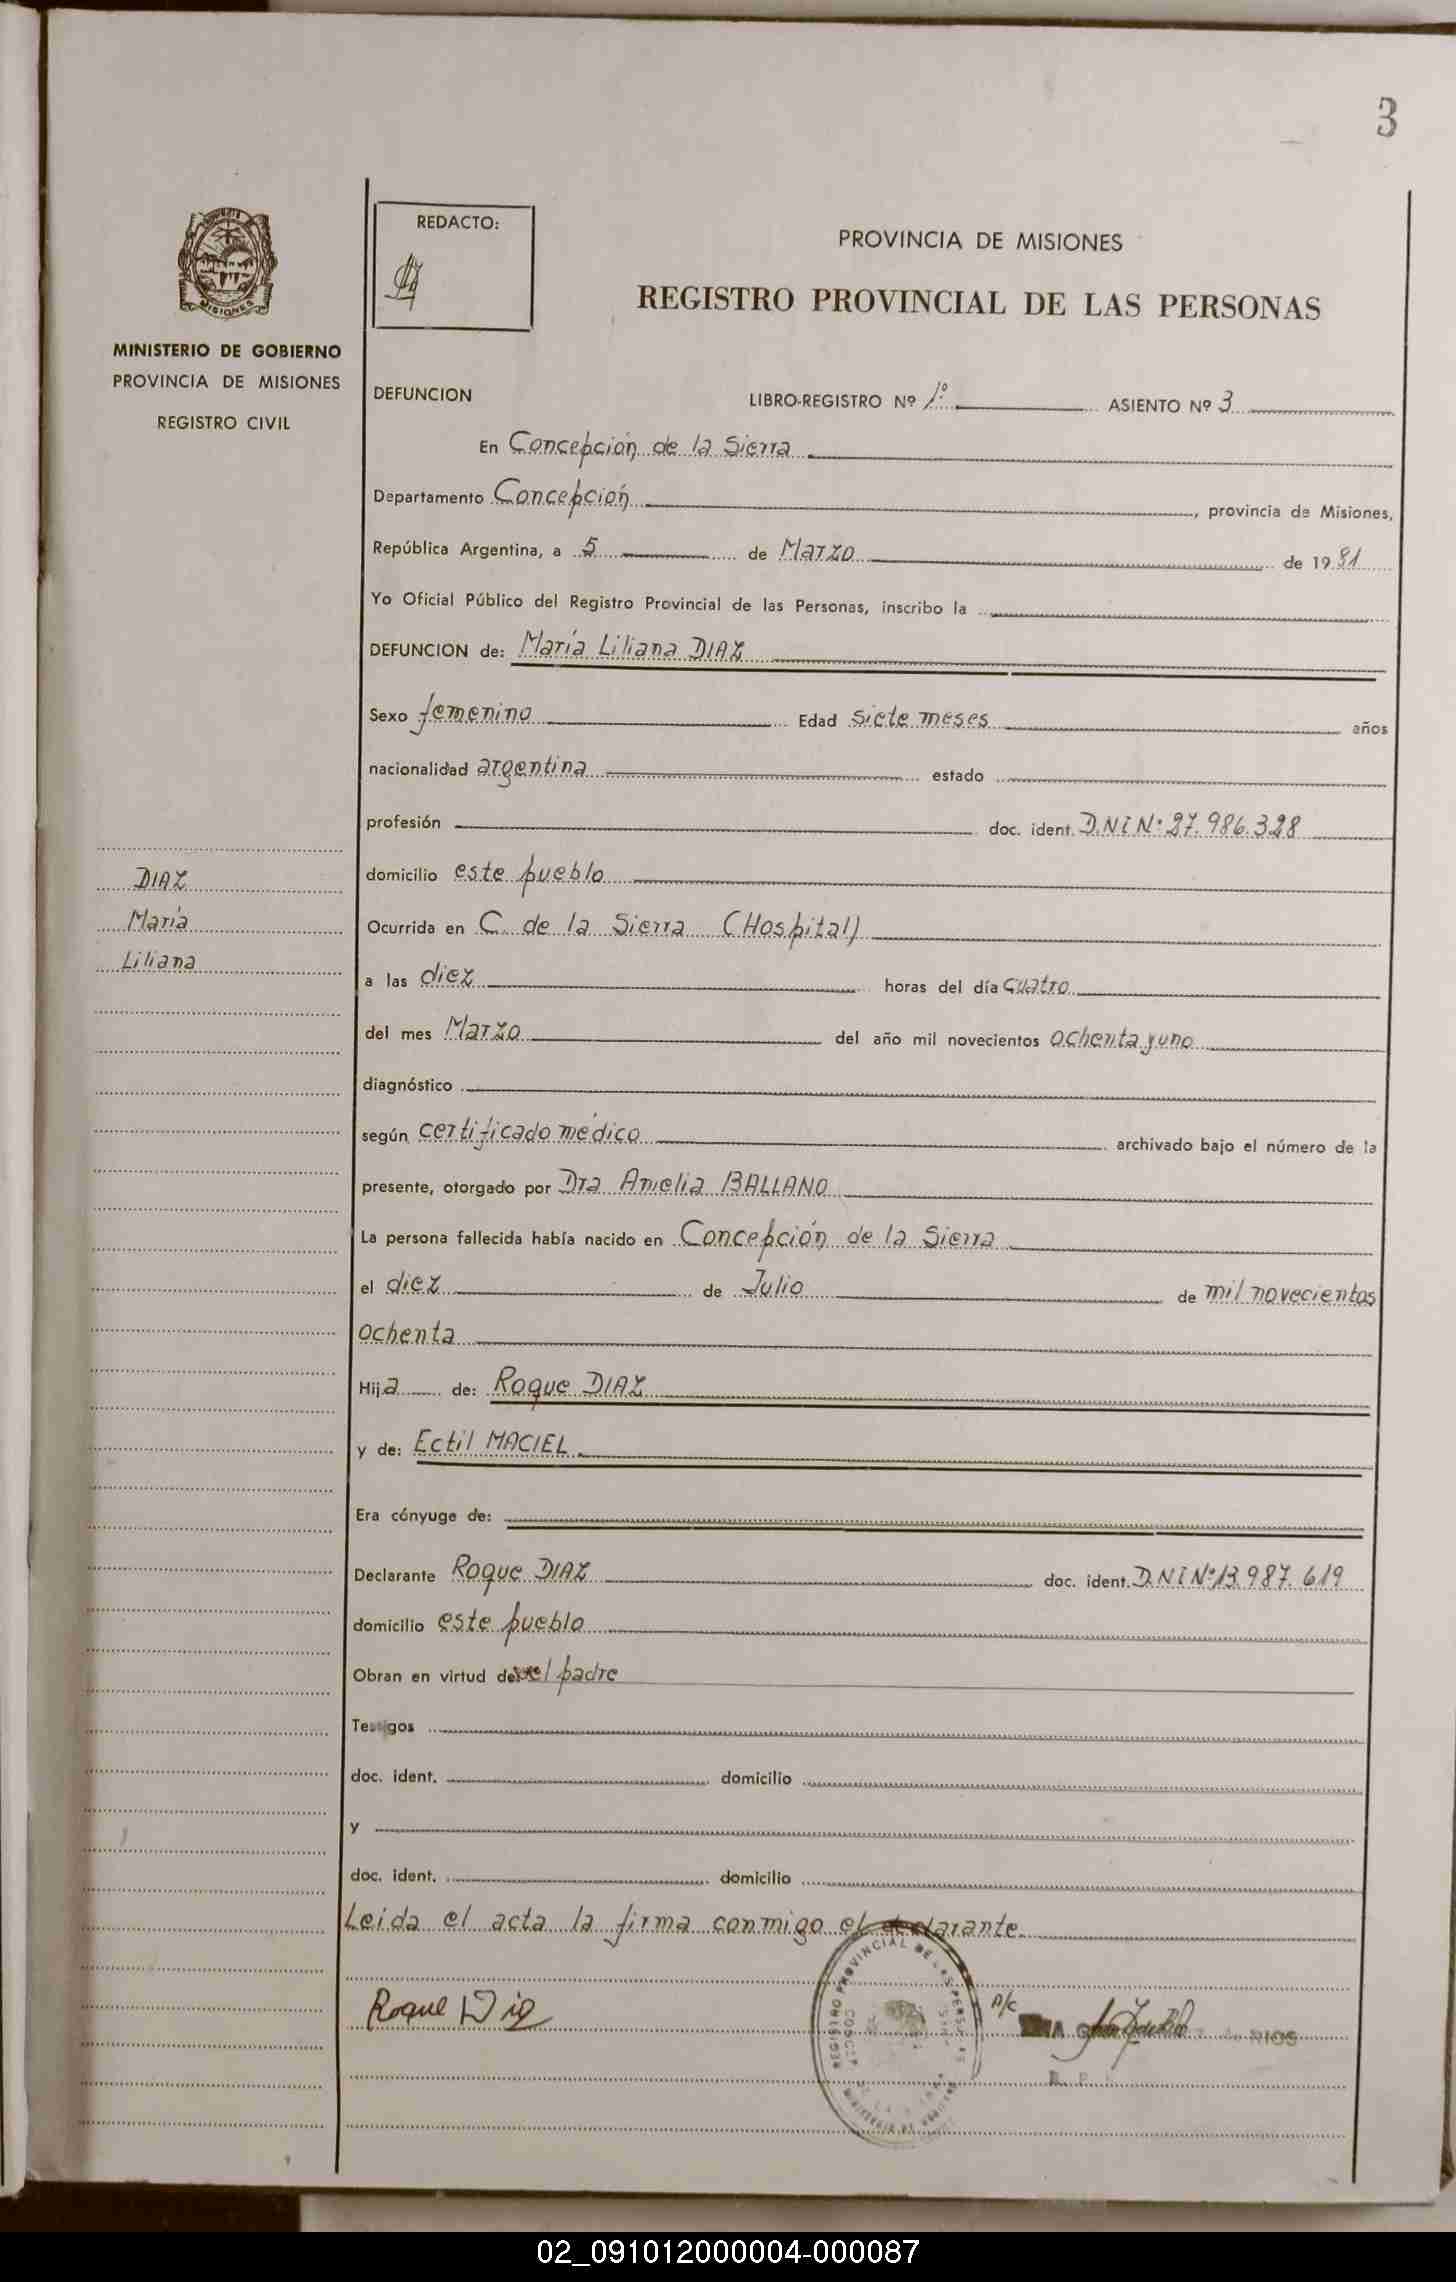 3
REDACTO:
PROVINCIA DE MISIONES
REGISTRO PROVINCIAL DE LAS PERSONAS
MISIONES
MINISTERIO DE GOBIERNO
PROVINCIA DE MISIONES
REGISTRO CIVIL
DEFUNCION LIBRO-REGISTRO Nº 1º ASIENTO Nº 3
En Concepción de la Sierra
Departamento Concepción, provincia de Misiones,
República Argentina, a 5 de Marzo de 1981
Yo Oficial Público del Registro Provincial de las Personas, inscribo la
DEFUNCION de: María Liliana DIAZ
Sexo femenino Edad siete meses años
nacionalidad argentina estado
profesión doc. ident. D.N.I Nº 27.986.328
DIAZ
María
Liliana
domicilio este pueblo
Ocurrida en C. de la Sierra (Hospital)
a las diez horas del día cuatro
del mes Marzo del año mil novecientos ochenta y uno
diagnóstico
según certificado médico archivado bajo el número de la
presente, otorgado por Dra Amelia BALLANO
La persona fallecida había nacido en Concepción de la Sierra
el diez de Julio de mil novecientos
ochenta
Hija de: Roque DIAZ
y de: Ectil MACIEL
Era cónyuge de:
Declarante Roque DIAZ doc. ident. D.N.I Nº 13.987.619
domicilio este pueblo
Obran en virtud de el padre
Testigos
doc. ident. domicilio
y
doc. ident. domicilio
Leida el acta la firma conmigo el declarante.
REGISTRO PROVINCIAL DE LAS PERSONAS
Roque Diaz
A/C
RIOS
02_091012000004-000087